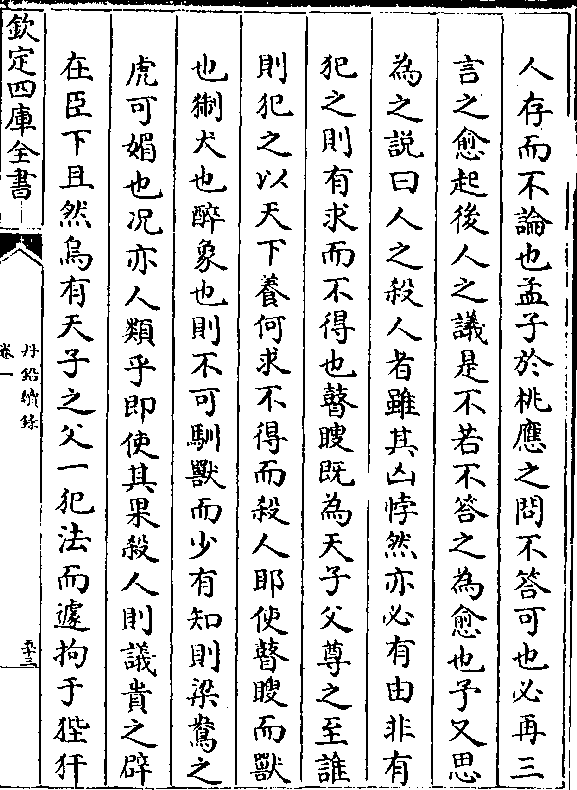 人存而不論也孟子於桃應之問不答可也必再三
言之愈起後人之議是不若不答之為愈也予又思
為之説曰人之殺人者雖其凶悖然亦必有由非有
犯之則有求而不得也瞽瞍既為天子父尊之至誰
則犯之以天下養何求不得而殺人耶使瞽瞍而獸
也猘犬也醉象也則不可馴獸而少有知則梁鴦之
虎可媚也况亦人類乎即使其果殺人則議貴之辟
在臣下且然烏有天子之父一犯法而遽拘于狴犴
欽定四庫全書
丹鉛續錄
卷一